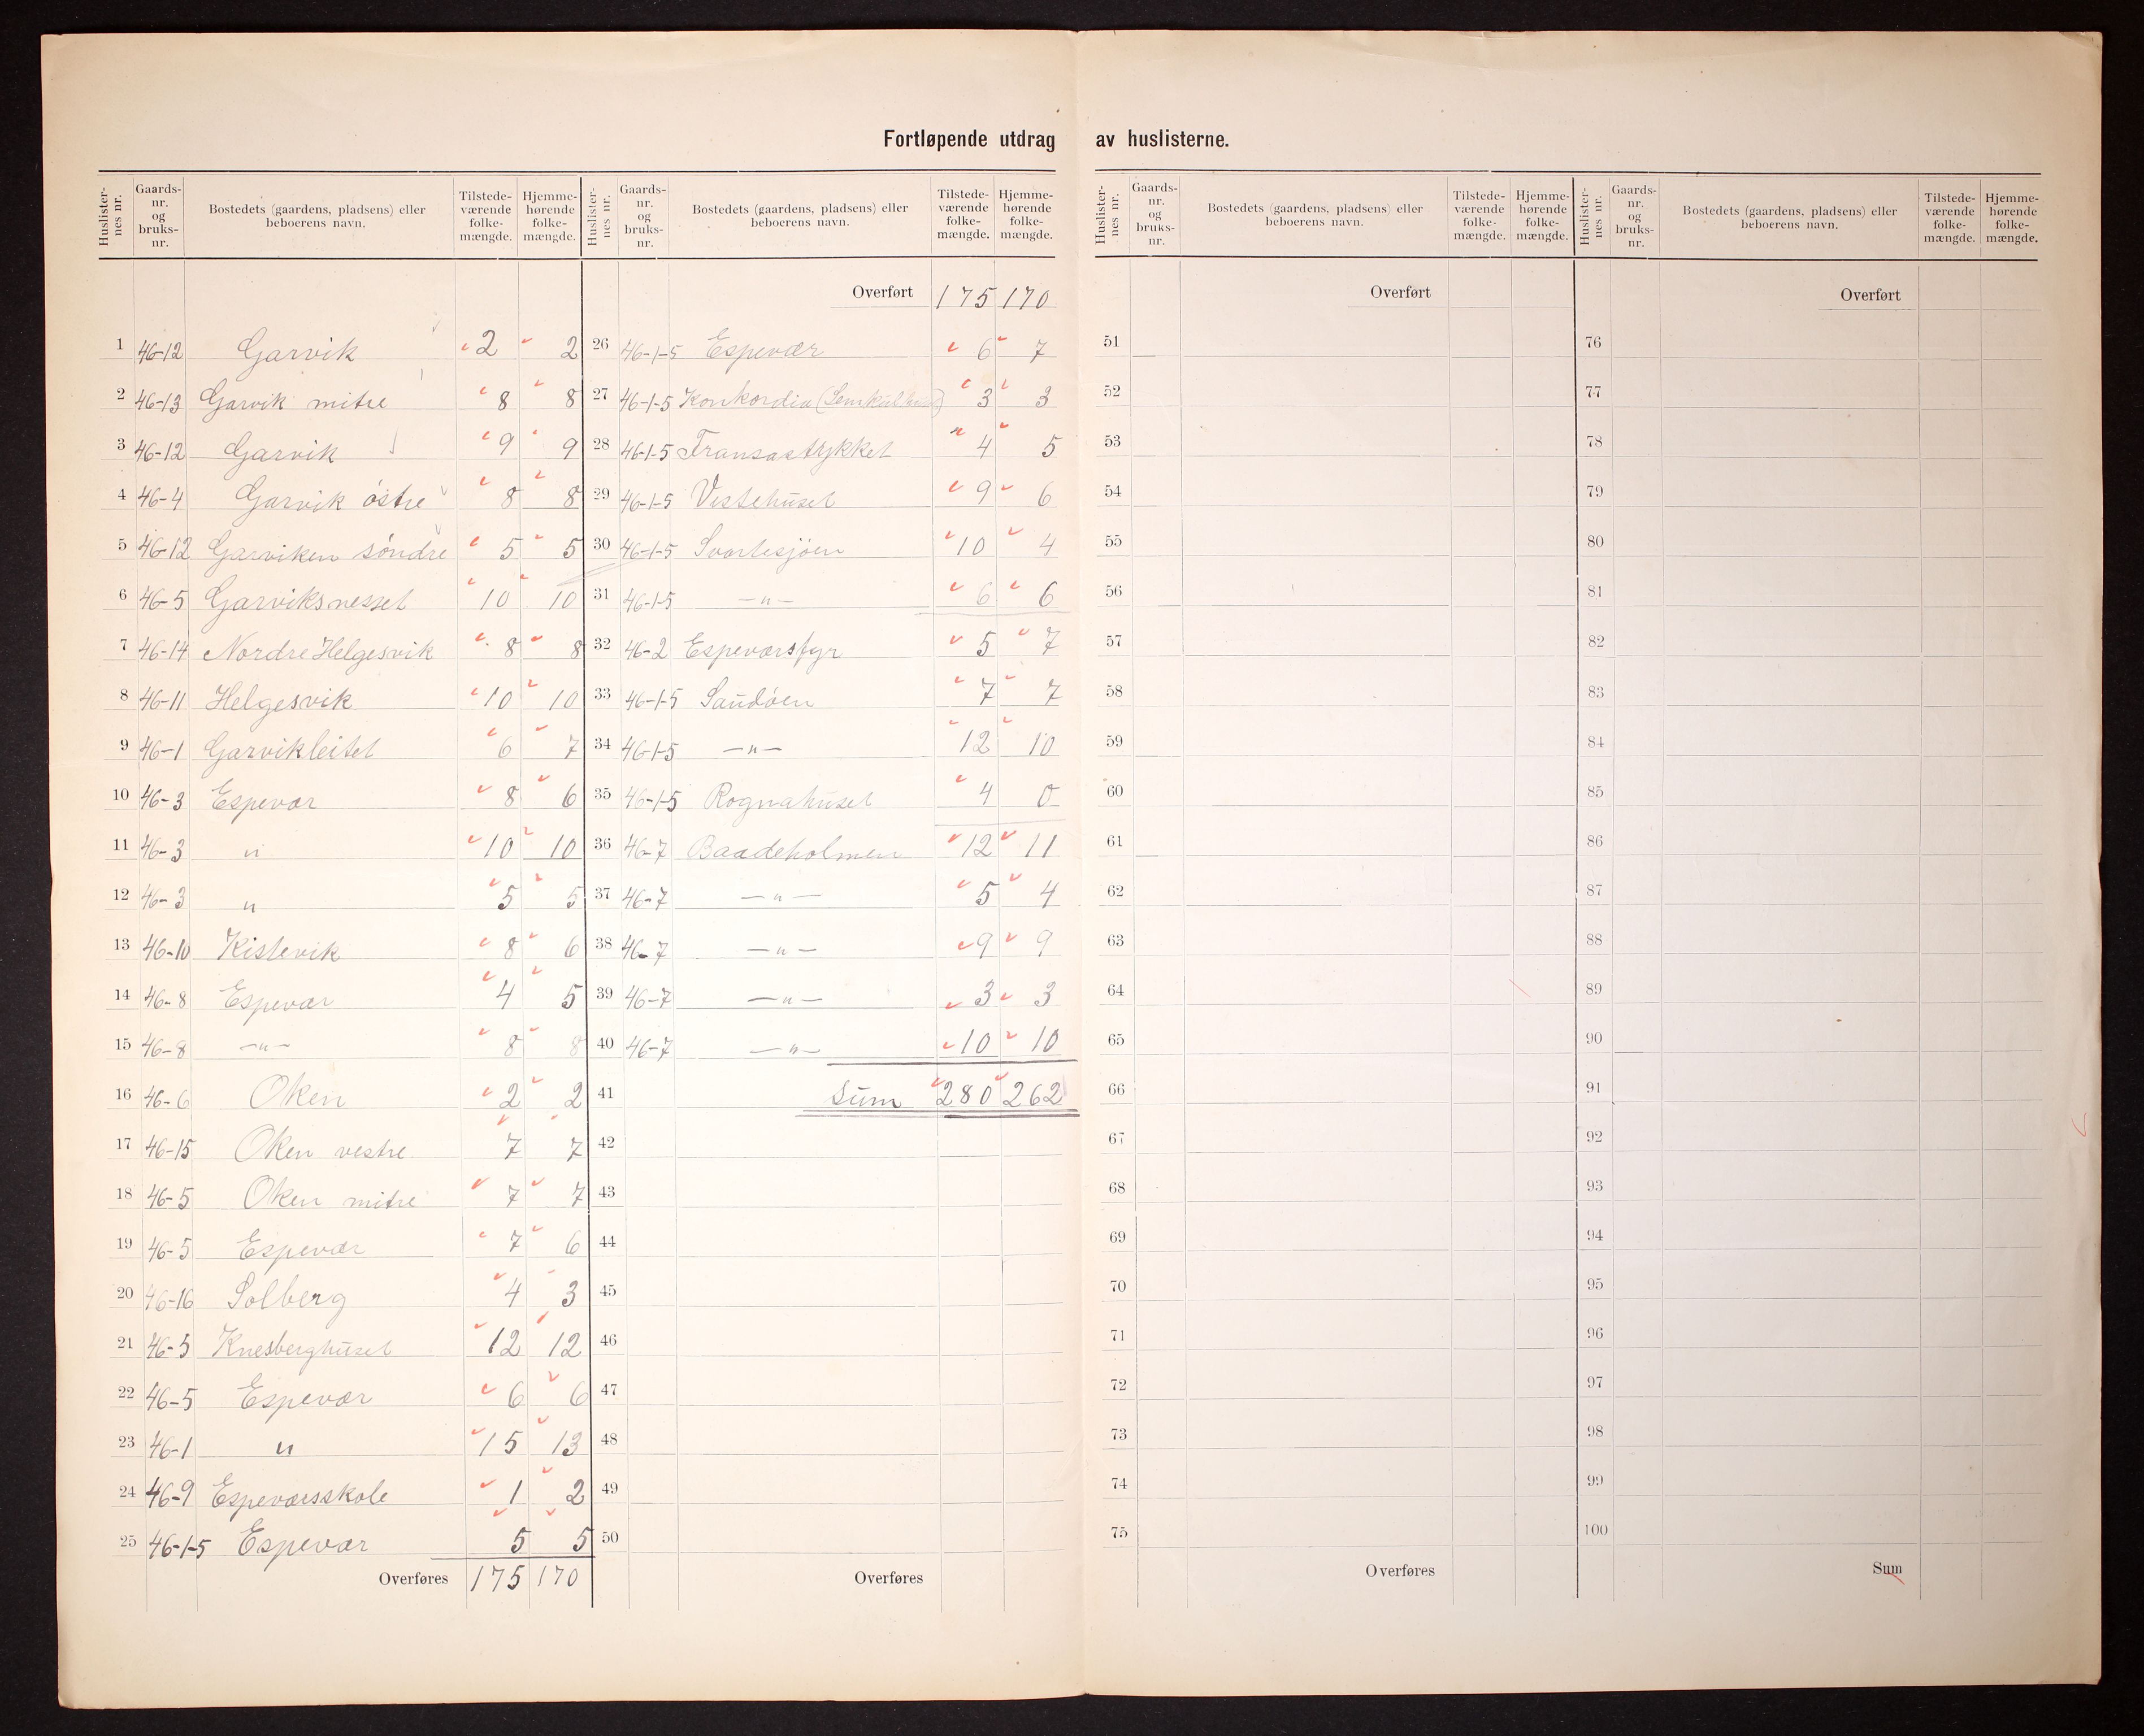 Fortløpende utdrag av huslisterne.
Huslisternes nr. Gaardsnr. og bruksnr. Bostedets (gaardens, pladsens) eller beboerens navn. Tilstedeværende folkemængde. Hjemmehørende folkemængde.
1 46-12 Garvik 2 2
2 46-13 Garvik mitre 8 8
3 46-12 Garvik 9 9
4 46-4 Garvik östre 8 8
5 46-12 Garviken söndre 5 5
6 46-5 Garviksnesset 10 10
7 46-14 Nordre Helgesvik 8 8
8 46-11 Helgesvik 10 10
9 46-1 Garvikleitet 6 7
10 46-3 Espevær 8 6
11 46-3 " 10 10
12 46-3 " 5 5
13 46-10 Kistevik 8 6
14 46-8 Espevær 4 5
15 46-8 -"- 8 8
16 46-6 Oken 2 2
17 46-15 Oken vestre 7 7
18 46-5 Oken mitre 7 7
19 46-5 Espevær 7 6
20 46-16 Solberg 4 3
21 46-5 Knesberghuset 12 12
22 46-5 Espevær 6 6
23 46-1 " 15 13
24 46-9 Espeværsskole 1 2
25 46-1-5 Espevær 5 5
Overføres 175 170
Huslisternes nr. Gaardsnr. og bruksnr. Bostedets (gaardens, pladsens) eller beboerens navn. Tilstedeværende folkemængde. Hjemmehørende folkemængde.
Overført 175 170
26 46-1-5 Espevær 6 7
27 46-1-5 Konkordia 3 3
28 46-1-5 Fransastykket 4 5
29 46-1-5 Vestehuset 9 6
30 46-1-5 Svartesjöen 10 4
31 46-1-5 -"- 6 6
32 46-2 Espeværsfyr 5 7
33 46-1-5 Sandöen 7 7
34 46-1-5 -"- 12 10
35 46-1-5 Rognahuset 4 0
36 46-7 Baadeholmen 12 11
37 46-7 -"- 5 4
38 46-7 -"- 9 9
39 46-7 -"- 3 3
40 46-7 -"- 10 10
41 Sum 280 262
42
43
44
45
46
47
48
49
50
Overføres
Huslisternes nr. Gaardsnr. og bruksnr. Bostedets (gaardens, pladsens) eller beboerens navn. Tilstedeværende folkemængde. Hjemmehørende folkemængde.
Overført
51
52
53
54
55
56
57
58
59
60
61
62
63
64
65
66
67
68
69
70
71
72
73
74
75
Overføres
Huslisternes nr. Gaardsnr. og bruksnr. Bostedets (gaardens, pladsens) eller beboerens navn. Tilstedeværende folkemængde. Hjemmehørende folkemængde.
Overført
76
77
78
79
80
81
82
83
84
85
86
87
88
89
90
91
92
93
94
95
96
97
98
99
100
Sum